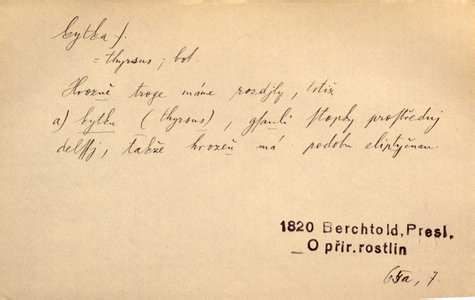 kytka f.
= thyrsus; bot.
Hrozně troge máme rozdjly, totiž
a) kytku (thyrsus), gsauli stopky prostředнj
delssj, takže hrozen má podobu eliptyčnau.
1820 Berchtold, Presl.
O přir. rostlin
7.